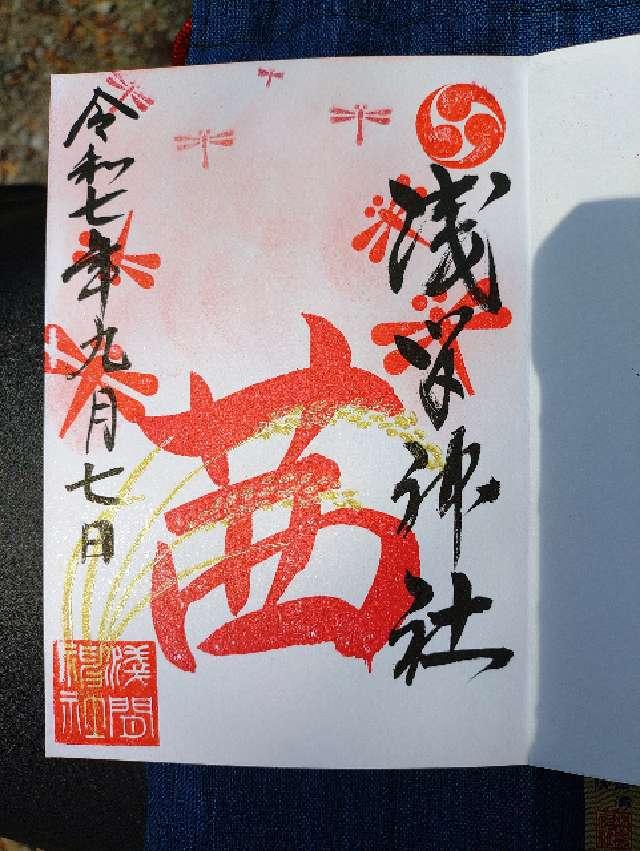 浅間神社
茜
令和七年九月七日
淺間
神社